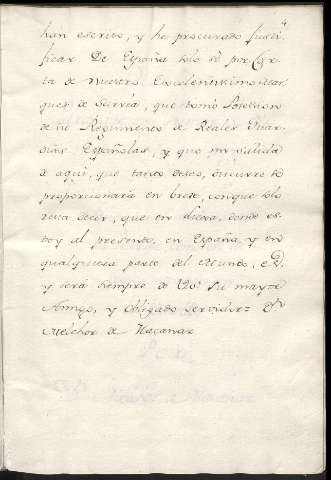 4
han escrito, y he procurado justi-
ficar De España solo sé por Car-
ta de nuestro Excelentissimo Mar-
ques de Sarria, que tomó Posesion
de su Regimiento de Reales Guar-
dias Españolas, y que mi salida
de aqui, que tanto deseo,
proporcionará en breve, conque solo
resta decir, que en donde es-
toy al presente, en España, y en
qualquiera parte del Mundo,
y será siempre de VS su mayor
Amigo, y Obligado Servidor= Dn
Melchor de Macanaz